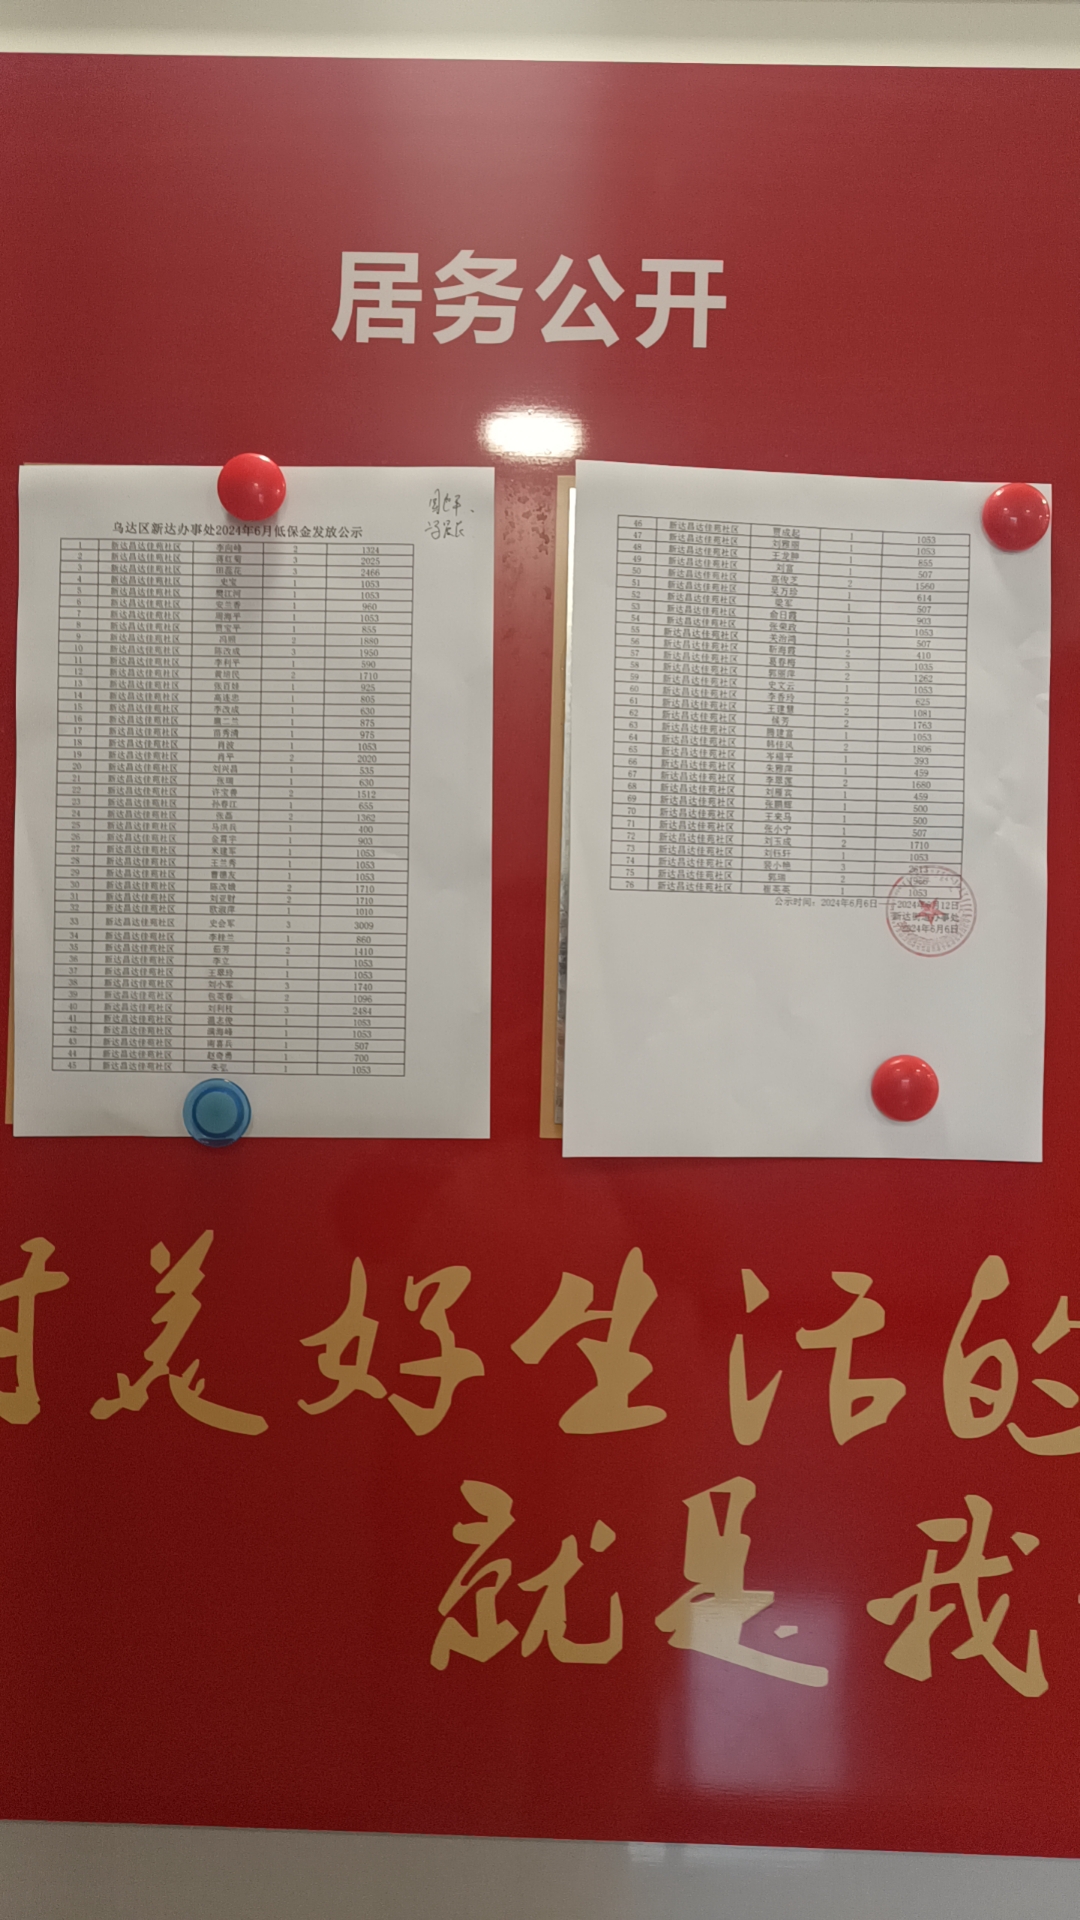 居务公开
乌达区新达办事处2024年6月低保金发放公示
1 新达昌达佳苑社区 李向峰 2 1324
2 新达昌达佳苑社区 3 2025
3 新达昌达佳苑社区 田蕊花 3 2466
4 新达昌达佳苑社区 史宝 1 1053
5 新达昌达佳苑社区 樊江河 1 1053
6 新达昌达佳苑社区 安兰香 1 960
7 新达昌达佳苑社区 周海平 1 1053
8 新达昌达佳苑社区 贾宝平 1 855
9 新达昌达佳苑社区 冯刚 2 1880
10 新达昌达佳苑社区 陈改成 3 1950
11 新达昌达佳苑社区 李利平 1 590
12 新达昌达佳苑社区 黄培民 2 1710
13 新达昌达佳苑社区 张百娃 1 925
14 新达昌达佳苑社区 高连忠 1 805
15 新达昌达佳苑社区 李改成 1 630
16 新达昌达佳苑社区 1 875
17 新达昌达佳苑社区 苗秀清 1 975
18 新达昌达佳苑社区 肖波 1 1053
19 新达昌达佳苑社区 肖平 2 2020
20 新达昌达佳苑社区 刘兴昌 1 535
21 新达昌达佳苑社区 张瑞 1 630
22 新达昌达佳苑社区 许宝善 2 1512
23 新达昌达佳苑社区 孙春江 1 655
24 新达昌达佳苑社区 张磊 2 1362
25 新达昌达佳苑社区 马洪兵 1 400
26 新达昌达佳苑社区 金贯宇 1 903
27 新达昌达佳苑社区 米建军 1 1053
28 新达昌达佳苑社区 王兰秀 1 1053
29 新达昌达佳苑社区 曹德友 1 1053
30 新达昌达佳苑社区 陈改娥 2 1710
31 新达昌达佳苑社区 刘亚财 2 1710
32 新达昌达佳苑社区 歌淑萍 1 1010
33 新达昌达佳苑社区 史会军 3 3009
34 新达昌达佳苑社区 李桂兰 1 860
35 新达昌达佳苑社区 茹芳 2 1410
36 新达昌达佳苑社区 李文 1 1053
37 新达昌达佳苑社区 王翠玲 1 1053
38 新达昌达佳苑社区 刘小军 3 1740
39 新达昌达佳苑社区 包英春 2 1096
40 新达昌达佳苑社区 刘利枝 3 2484
41 新达昌达佳苑社区 温志俊 1 1053
42 新达昌达佳苑社区 蒲海峰 1 1053
43 新达昌达佳苑社区 南喜兵 1 507
44 新达昌达佳苑社区 赵奇勇 1 700
45 新达昌达佳苑社区 朱弘 1 1053
46 新达昌达佳苑社区 贾成起 1 1053
47 新达昌达佳苑社区 刘雅丽 1 1053
48 新达昌达佳苑社区 王龙肿 1 855
49 新达昌达佳苑社区 刘富 1 507
50 新达昌达佳苑社区 高俊芝 2 1560
51 新达昌达佳苑社区 吴万珍 1 614
52 新达昌达佳苑社区 梁军 1 507
53 新达昌达佳苑社区 俞日霞 1 903
54 新达昌达佳苑社区 张荣政 1 1053
55 新达昌达佳苑社区 关治鸿 1 507
56 新达昌达佳苑社区 靳海霞 2 410
57 新达昌达佳苑社区 葛春梅 3 1035
58 新达昌达佳苑社区 郭丽萍 2 1262
59 新达昌达佳苑社区 史文云 1 1053
60 新达昌达佳苑社区 李香玲 2 625
61 新达昌达佳苑社区 王建慧 2 1081
62 新达昌达佳苑社区 侯芳 2 1763
63 新达昌达佳苑社区 腾建富 1 1053
64 新达昌达佳苑社区 韩佳凤 2 1806
65 新达昌达佳苑社区 岑福平 1 393
66 新达昌达佳苑社区 朱雅萍 1 459
67 新达昌达佳苑社区 李翠莲 2 1680
68 新达昌达佳苑社区 刘雁宾 1 459
69 新达昌达佳苑社区 张鹏辉 1 500
70 新达昌达佳苑社区 王来马 1 500
71 新达昌达佳苑社区 张小宁 1 507
72 新达昌达佳苑社区 刘玉成 2 1710
73 新达昌达佳苑社区 刘钰轩 1 1053
74 新达昌达佳苑社区 裴小艳 3
75 新达昌达佳苑社区 郭瑞 2
76 新达昌达佳苑社区 崔英英 1 1053
公示时间：2024年6月6日——2024年6月12日
新达街道办事处
2024年6月6日
对美好生活的
就是我